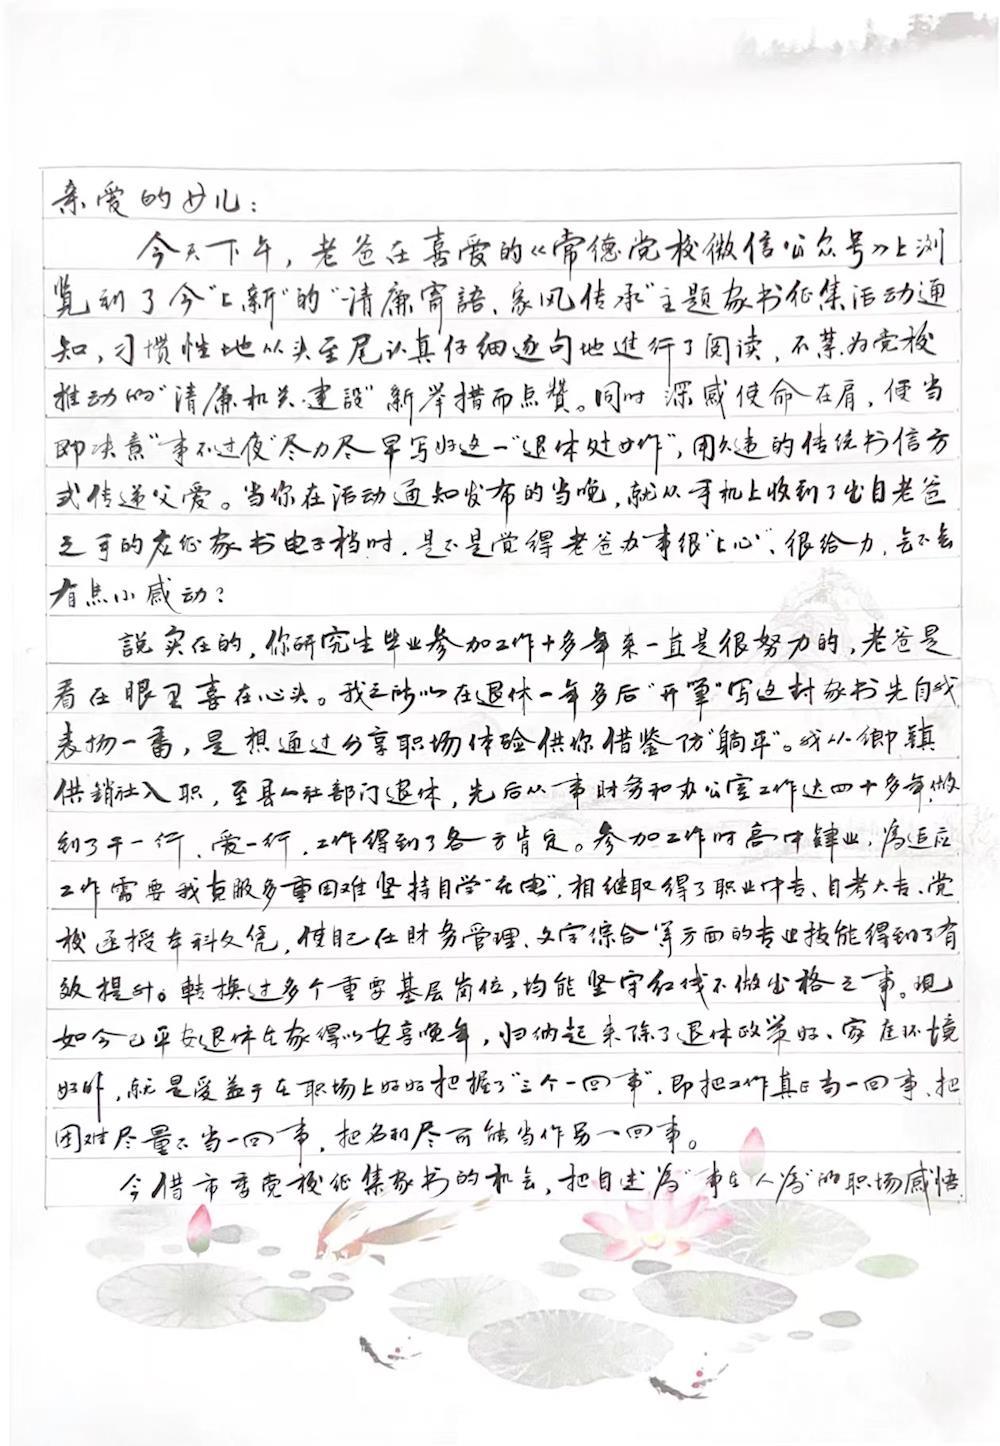 亲爱的女儿：
今天下午，老爸在喜爱的《常德党校微信公众号》上浏
览到了今“上新”的“清廉寄語、家风传承”主题家书征集活动通
知，习惯性地从头至尾认真仔细逐句地进行了阅读，不禁为党校
推动的“清廉机关建設”新举措而点赞。同时深感使命在肩，便当
即决意“事不过夜”尽力尽早写好这一“退休处女作”，用久违的传统书信方
式传递父爱。当你在活动通知发布的当晚，就从手机上收到了出自老爸
之手的应征家书电子档时，是不是觉得老爸办事很“上心”、很给力，会不会
有点小感动？
説实在的，你研究生毕业参加工作十多年来一直是很努力的，老爸是
看在眼里喜在心头。我之所以在退休一年多后“开筆”写这封家书先自我
表扬一番，是想通过分享职场体验供你借鉴防“躺平”。我从鄉鎮
供銷社入职，至县人社部门退休，先后从事财务和办公室工作达四十多年，做
到了干一行、爱一行，工作得到了各方肯定。参加工作时高中肄业，為适应
工作需要我克服多重困难坚持自学“充电”，相继取得了职业中专、自考大专、党
校函授本科文凭，使自己在财务管理、文字综合等方面的专业技能得到了有
效提升。轉换过多个重要基层岗位，均能坚守红线不做出格之事。现
如今已平安退休在家得以安享晚年，归纳起来除了退休政策好、家庭环境
好外，就是受益于在职场上好好把握了“三个一回事”，即把工作真正当一回事、把
困难尽量不当一回事，把名利尽可能当作另一回事。
今借市委党校征集家书的机会，把自述為“事在人為”的职场感悟